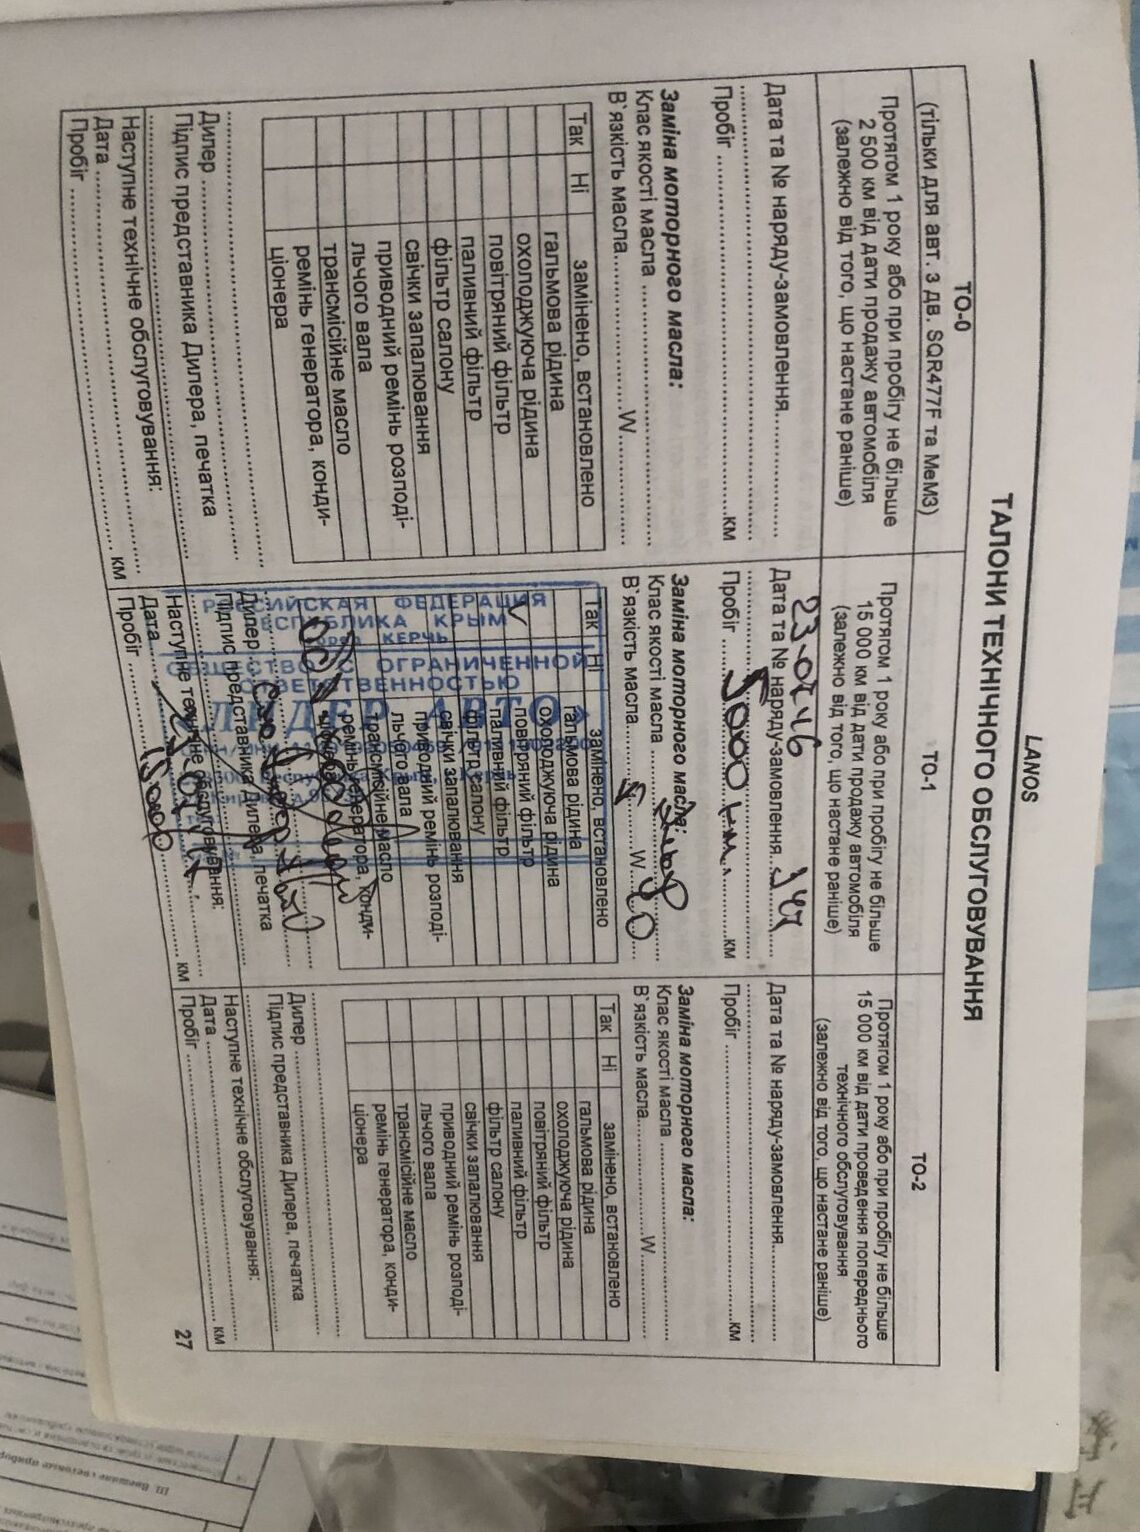 LANOS
ТАЛОНИ ТЕХНІЧНОГО ОБСЛУГОВУВАННЯ
ТО-0
(тільки для авт. з дв. SQR477F та МеМЗ)
Протягом 1 року або при пробігу не більше
2 500 км від дати продажу автомобіля
(залежно від того, що настане раніше)
Дата та № наряду-замовлення
Пробіг км
Заміна моторного масла:
Клас якості масла
В`язкість масла W
Так Ні замінено, встановлено
гальмова рідина
охолоджуюча рідина
повітряний фільтр
паливний фільтр
фільтр салону
свічки запалювання
приводний ремінь розподі-
льчого вала
трансмісійне масло
ремінь генератора, конди-
ціонера
Дилер
Підпис представника Дилера, печатка
Наступне технічне обслуговування:
Дата
Пробіг км
ТО-1
Протягом 1 року або при пробігу не більше
15 000 км від дати продажу автомобіля
(залежно від того, що настане раніше)
Дата та № наряду-замовлення
Пробіг 5000 км. км
Заміна моторного масла:
Клас якості масла
В`язкість масла W
Так Ні замінено, встановлено
гальмова рідина
охолоджуюча рідина
повітряний фільтр
паливний фільтр
фільтр салону
свічки запалювання
приводний ремінь розподі-
льчого вала
трансмісійне масло
ремінь генератора, конди-
ціонера
Дилер
Підпис представника Дилера, печатка
Наступне технічне обслуговування:
Дата
Пробіг 15000 км
РОССИЙСКАЯ ФЕДЕРАЦИЯ
РЕСПУБЛИКА КРЫМ
город КЕРЧЬ
ОБЩЕСТВО С ОГРАНИЧЕННОЙ
ОТВЕТСТВЕННОСТЬЮ
ЛИДЕР АВТО
ТО-2
Протягом 1 року або при пробігу не більше
15 000 км від дати проведення попереднього
технічного обслуговування
(залежно від того, що настане раніше)
Дата та № наряду-замовлення
Пробіг км
Заміна моторного масла:
Клас якості масла
В`язкість масла W
Так Ні замінено, встановлено
гальмова рідина
охолоджуюча рідина
повітряний фільтр
паливний фільтр
фільтр салону
свічки запалювання
приводний ремінь розподі-
льчого вала
трансмісійне масло
ремінь генератора, конди-
ціонера
Дилер
Підпис представника Дилера, печатка
Наступне технічне обслуговування:
Дата
Пробіг км
27